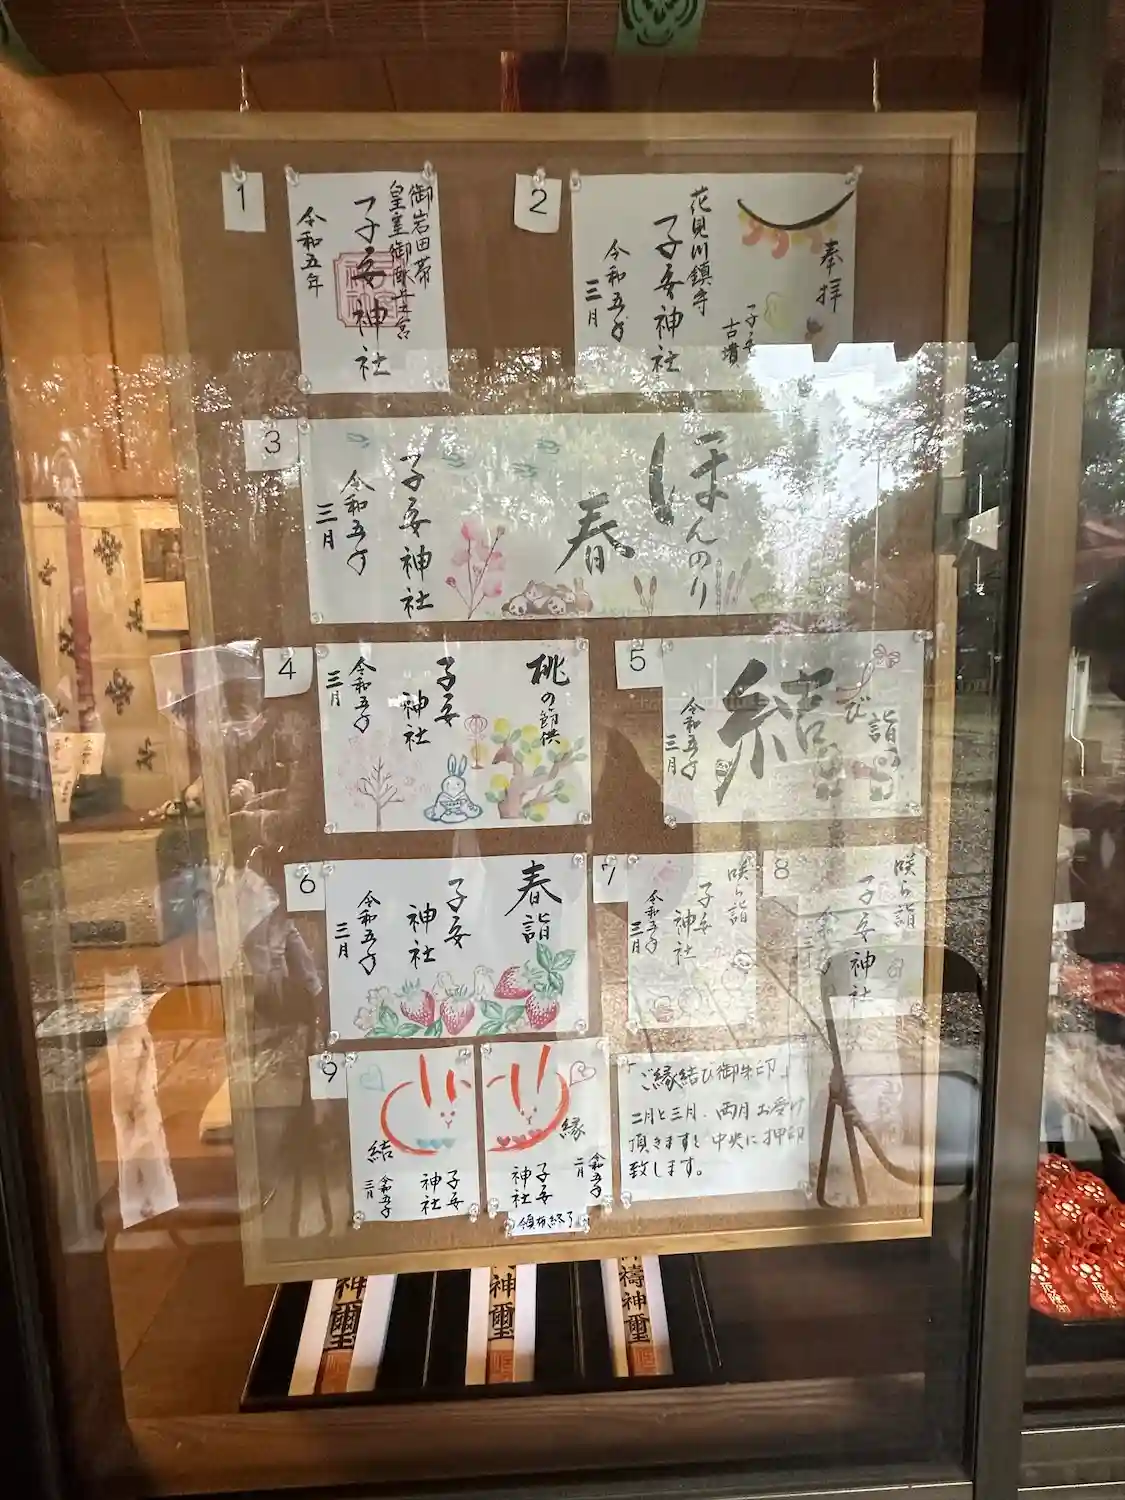 1
御岩田帯
皇室御献上宮
子安神社
令和五年
2
奉拝
子安
古墳
花見川鎮守
子安神社
令和五年
三月
3
ほんのり
春
子安神社
令和五年
三月
4
桃の節供
子安
神社
令和五年
三月
5
結び詣
令和五年
三月
6
春詣
子安
神社
令和五年
三月
7
咲ら詣
子安
神社
令和五年
三月
8
咲ら詣
子安神社
9
結
子安
神社
令和五年
三月
縁
子安
神社
令和五年
二月
頒布終了
「ご縁結び御朱印」
二月と三月、両月お受け
頂きますと中央に押印
致します。
神璽
神璽
祷神璽